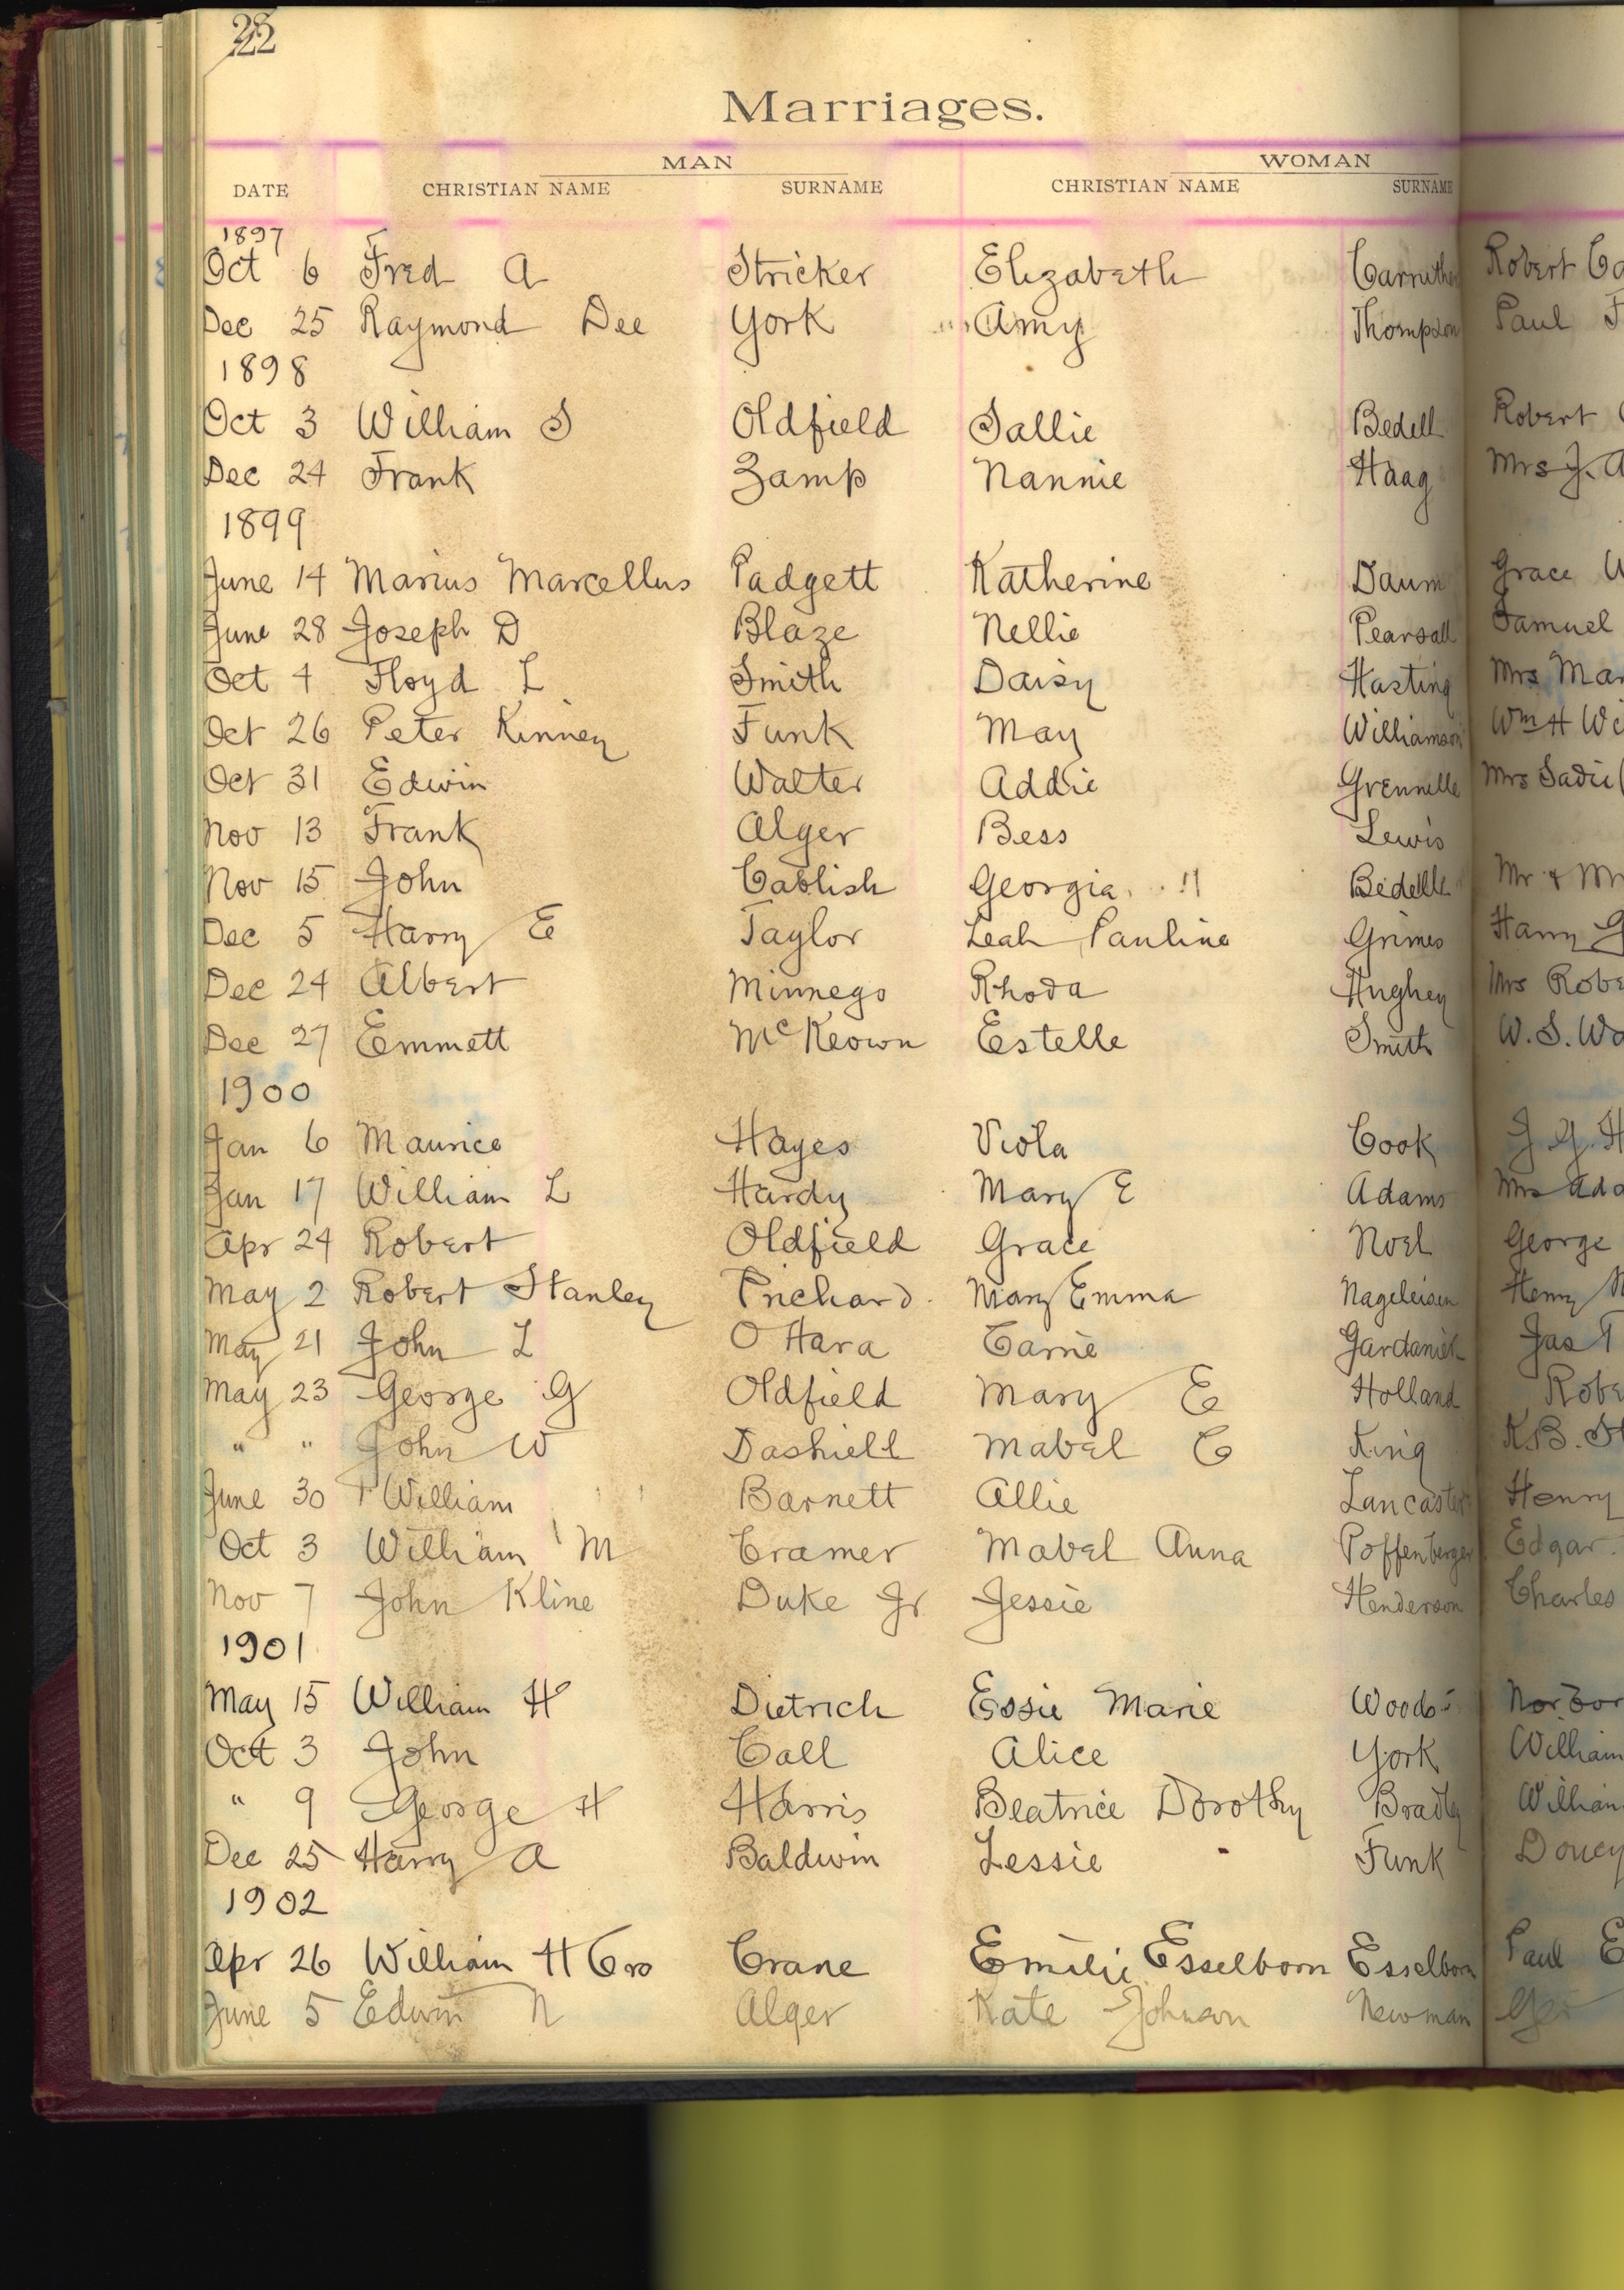 22
Marriages.
MAN WOMAN
DATE CHRISTIAN NAME SURNAME CHRISTIAN NAME SURNAME
1897
Oct 6 Fred A Stricker Elizabeth Carruther Robert Ca
Dec 25 Raymond Dee York Amy Thompson Paul F
1898
Oct 3 William S Oldfield Sallie Bedell Robert
Dec 24 Frank Zamp Nannie Haag Mrs J. A
1899
June 14 Marius Marcellus Padgett Katherine Daum Grace W
June 28 Joseph D Blaze Nellie Pearsall Samuel
Oct 4 Floyd L Smith Daisy Hasting Mrs Mar
Oct 26 Peter Kinney Funk May Williamson Wm H Wi
Oct 31 Edwin Walter Addie Grennelle Mrs Sadie
Nov 13 Frank Alger Bess Lewis
Nov 15 John Cablish Georgia Bedell Mr & Mr
Dec 5 Harry E Taylor Leah Pauline Grimes Harry G
Dec 24 Albert Minnego Rhoda Hughey Mrs Robe
Dec 27 Emmett McKeown Estelle Smith W. S. Wa
1900
Jan 6 Maurice Hayes Viola Cook J. G. H
Jan 17 William L Hardy Mary E Adams Mrs Ada
Apr 24 Robert Oldfield Grace Noel George
May 2 Robert Stanley Prichard Mary Emma Nageleisen Henry N
May 21 John L O Hara Carrie Gardanieh Jas T
May 23 George G Oldfield Mary E Holland Robe
" " John W Dashiell Mabel C King K.B. St
June 30 William Barnett Allie Lancaster Henry
Oct 3 William M Cramer Mabel Anna Poffenberger Edgar
Nov 7 John Kline Duke Jr Jessie Henderson Charles
1901
May 15 William H Dietrich Essie Marie Woods Norbor
Oct 3 John Call Alice York William
" 9 George H Harris Beatrice Dorothy Bradley William
Dec 25 Harry A Baldwin Lessie Funk
1902
Apr 26 William H Cro Crane Emilie Esselborn Esselborn Paul E
June 5 Edwin N Alger Kate Johnson Newman Geo